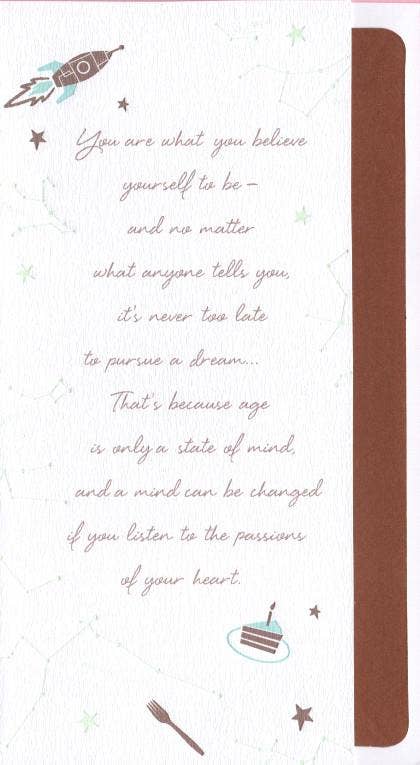 You are what you believe
yourself to be –
and no matter
what anyone tells you,
it's never too late
to pursue a dream...
That's because age
is only a state of mind,
and a mind can be changed
if you listen to the passions
of your heart.